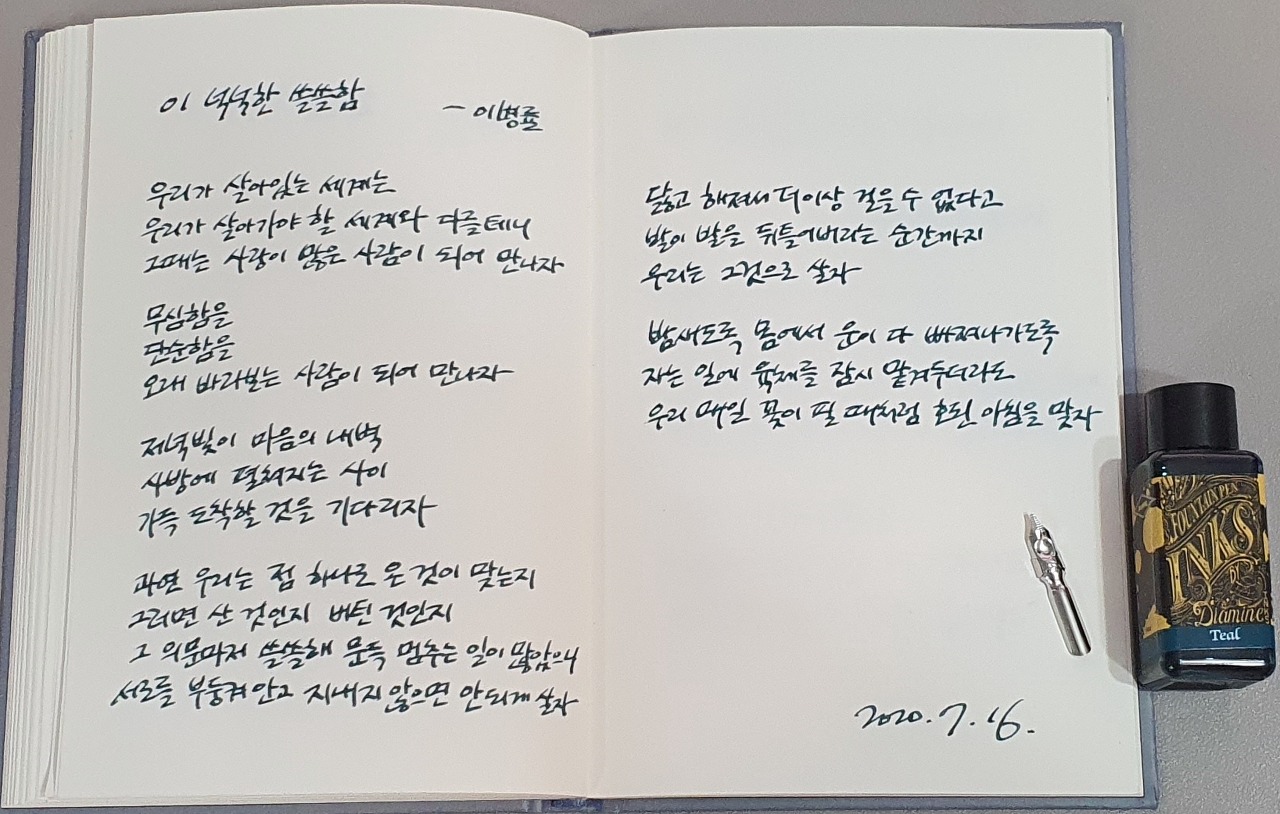 이 넉넉한 쓸쓸함
- 이병률
우리가 살아있는 세계는
우리가 살아가야 할 세계와 다를테니
그때는 사랑이 많은 사람이 되어 만나자
무심함을
단순함을
오래 바라보는 사람이 되어 만나자
저녁빛이 마음의 내벽
사방에 펼쳐지는 사이
가득 도착할 것을 기다리자
과연 우리는 점 하나로 온 것이 맞는지
그러면 산 것인지 버틴 것인지
그 의문마저 쓸쓸해 문득 멈추는 일이 많았으니
서로를 부둥켜안고 지내지 않으면 안되게 살자
닳고 해져서 더이상 걸을 수 없다고
발이 발을 뒤틀어버리는 순간까지
우리는 그것으로 살자
밤새도록 몸에서 운이 다 빠져나가도록
자는 일에 육체를 잠시 맡겨두더라도
우리 매일 꽃이 필 때처럼 호된 아침을 맞자
2020. 7. 16.
FOUNTAIN PEN
INKS
BY
Diamine
Teal